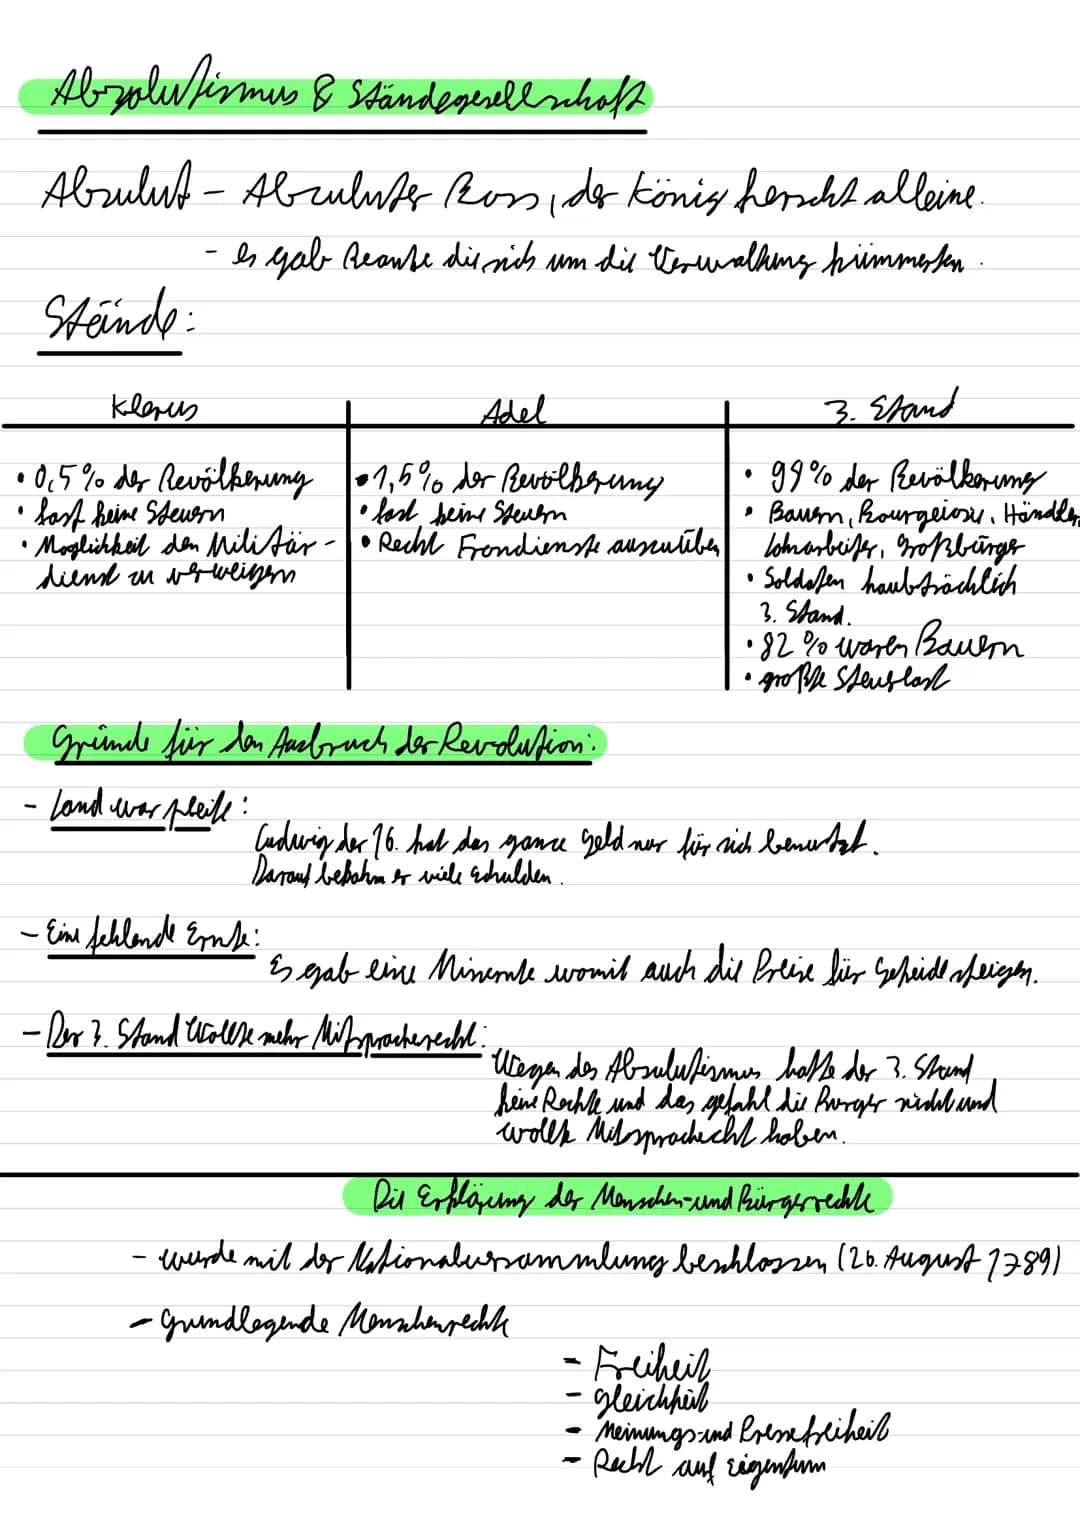 Absolutismus & Ständegesellschaft
Absulut - Absuluter Boss, der König herscht alleine.
- es gab Beamte die sich um die Verwaltung kümmerten.
Stände:
Klerus
Adel
3. Stand
• 0,5% der Bevölkerung
• fast keine Steuern
• Moglichkeit den Militär-
dienst zu verweigern
• 1,5% der Bevölkerung
• fast keine Steuern
• Recht Frondienste auszuüben
• 99% der Bevölkerung
• Bauern, Bourgeiosie, Händler,
Lohnarbeiter, Großbürger
• Soldaten haubträchlich
3. Stand.
• 82% waren Bauern
• große Steuerlast
Gründe für den Ausbruch der Revolution:
- Land war pleite:
Ludwig der 16. hat das ganze Geld nur für sich benutzt.
Darauf bekahm er viele Schulden.
- Eine fehlende Ernte:
Es gab eine Minernte womit auch die Preise für Getreide steigen.
- Der 3. Stand wollte mehr Mitspracherecht:
Wegen des Absulutismus hatte der 3. Stand
keine Rechte und das gefahl die Burger nicht und
wollte Mitsprachecht haben.
Die Erklärung der Menschen- und Bürgerrechte
- wurde mit der Nationalversammlung beschlossen (26. August 1789)
- grundlegende Menschenrechte
- Freiheit
- gleichheit
- Meinungs- und Pressefreiheit
- Recht auf Eigentum